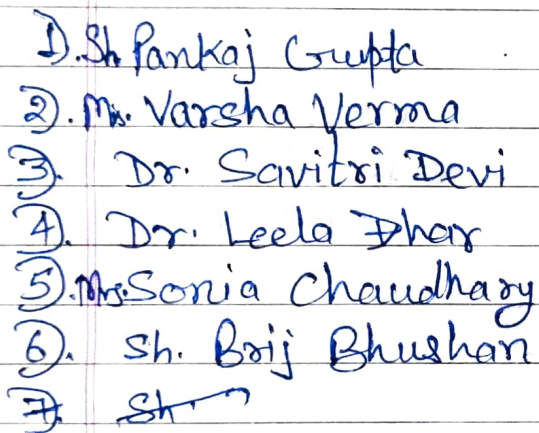 1). Sh Pankaj Gupta
2). Ms. Varsha Verma
3). Dr. Savitri Devi
4). Dr. Leela Dhar
5). Mrs. Sonia Chaudhary
6). Sh. Brij Bhushan
7. Sh